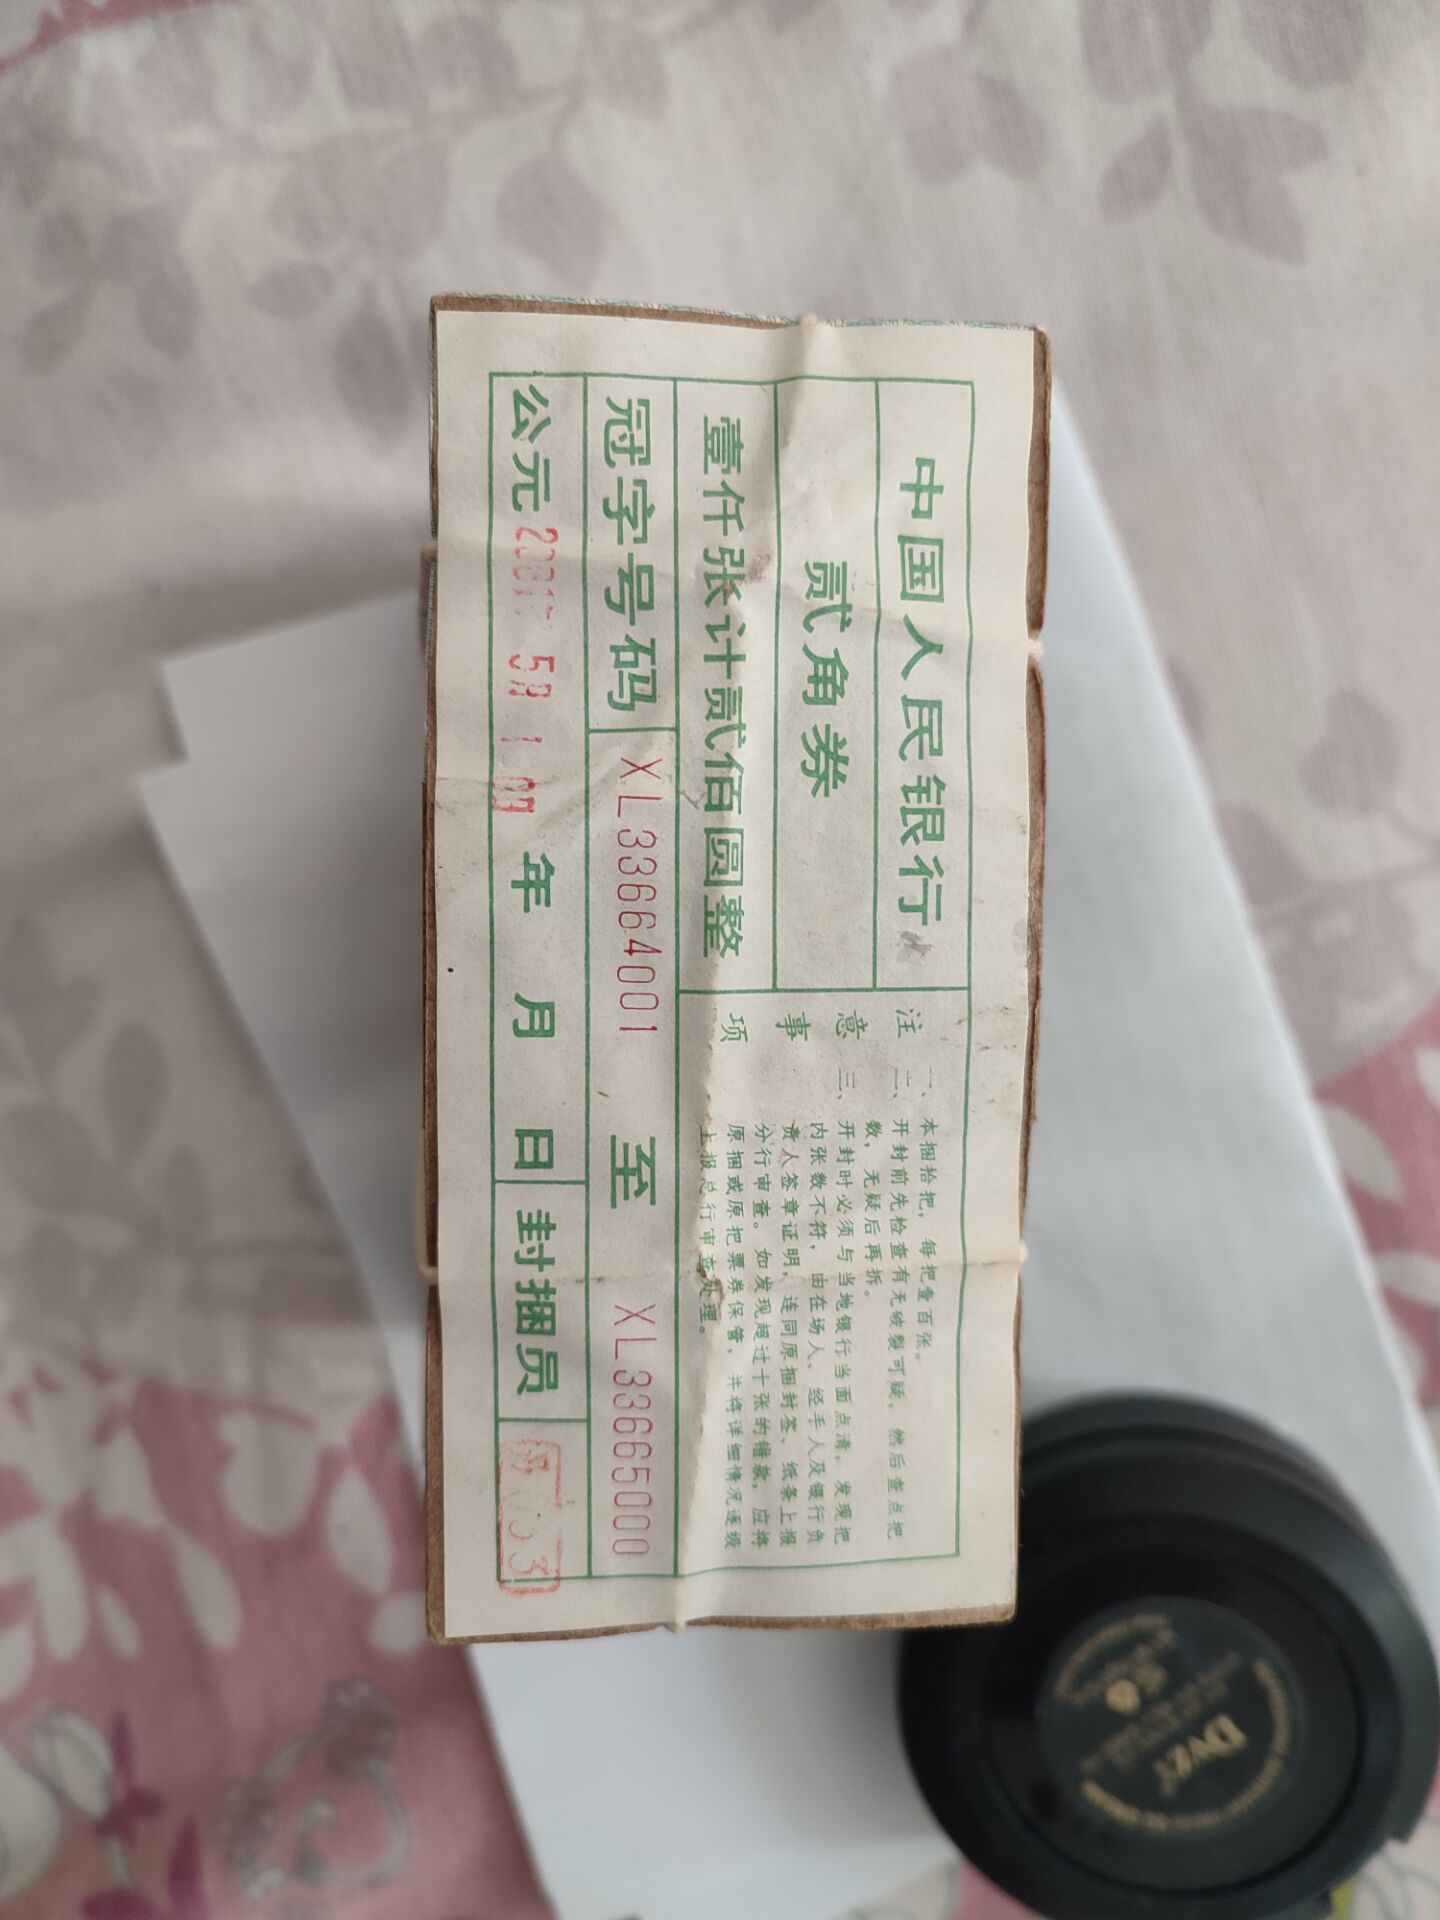 中国人民银行
贰角券
壹仟张计贰佰圆整
冠字号码 XL33664001 至 XL33665000
公元 年 月 日 封捆员
注意事项
一、本捆拾把，每把壹百张。
二、开封前先检查有无破裂可疑，然后查点把
数，无疑后再拆。
三、开封时必须与当地银行当面点清，发现把
内张数不符，由在场人、经手人及银行负
责人签章证明，连同原捆封签、纸条上报
分行审查。如发现超过十张的错款，应将
原捆或原把票券保管，并将详细情况逐级
上报总行审查处理。
Dvzr
56